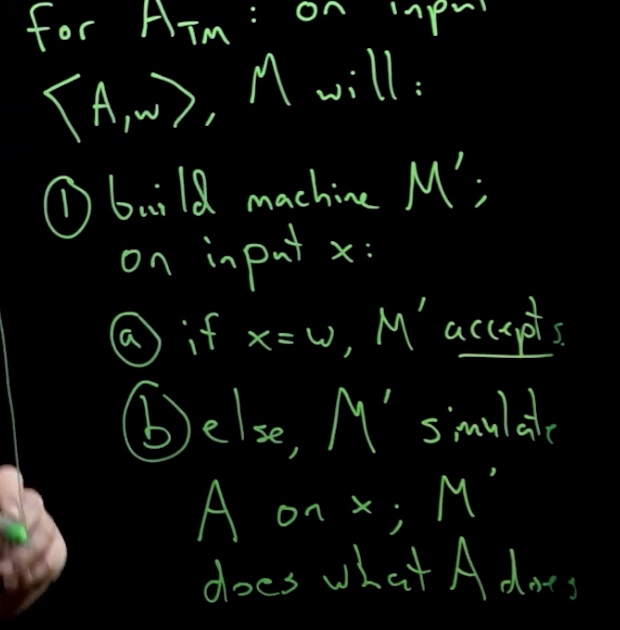 for A_TM : on input
⟨A,w⟩, M will:
① build machine M';
on input x:
ⓐ if x=w, M' accepts.
ⓑ else, M' simulate
A on x; M'
does what A does